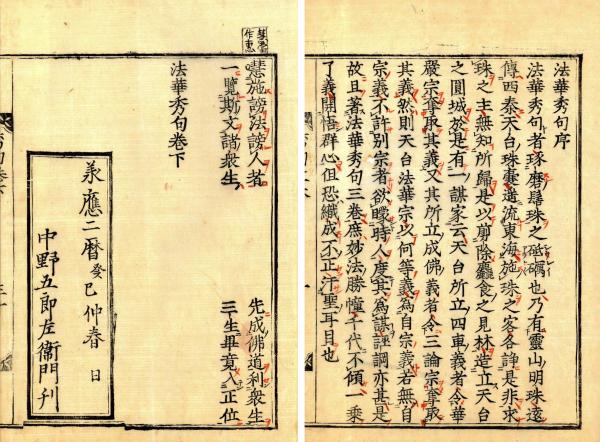 法華秀句序
法華秀句者琢磨髻珠之砥礪也乃有靈山明珠遠
傳西秦天台珠臺遺流東海施珠之客各諍是非求
珠之主無知所歸是以剪除麤食之見林造立天台
之圓城於是有一謀家云天台所立四車義者令華
嚴宗奪取其義又其所立成佛義者令三論宗奪取
其義然則天台法華宗以何等義為自宗義若無自
宗義不許別宗者欲矇時人度其為謀誣調亦甚是
故且著法華秀句三卷庶妙法勝幢千代不傾一乘
了義開悟群心但恐織成不正汗聖耳目也
慧施謗法謗人者
先成佛道利衆生
一覽斯文諸衆生
三生畢竟入正位
法華秀句卷下
承應二曆癸巳仲春 日
中野五郎左衞門刋